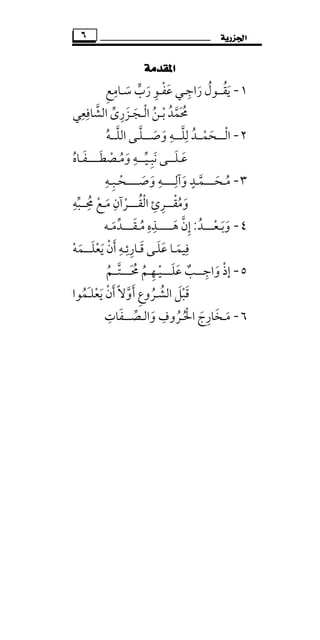 الجزرية ٦
المقدمة
١- يَقُـولُ رَاجِـي عَفْـوِ رَبٍّ سَـامِعِ
مُحَمَّدُ بْـنُ الْـجَـزَرِيِّ الشَّافِعِي
٢- الْــحَمْــدُ لِلَّــهِ وَصَـلَّــى اللَّــهُ
عَـلَــى نَبِـيِّــهِ وَمُـصْـطَــفَـاهُ
٣- مُـحَــمَّــدٍ وَآلِــهِ وَصَــحْـبِـهِ
وَمُقْــرِئِ الْقُــرْآنِ مَـعْ مُحِـبِّـهِ
٤- وَبَـعْــدُ: إِنَّ هَــذِهِ مُـقَــدِّمَـه
فِيمَـا عَلَـى قَـارِئِـهِ أَنْ يَعْلَــمَهْ
٥- إِذْ وَاجِــبٌ عَلَــيْـهِـمُ مُحَــتَّــمُ
قَبْلَ الشُّـرُوعِ أَوَّلاً أَنْ يَعْلَـمُوا
٦- مَـخَارِجَ الْحُـرُوفِ وَالـصِّــفَـاتِ